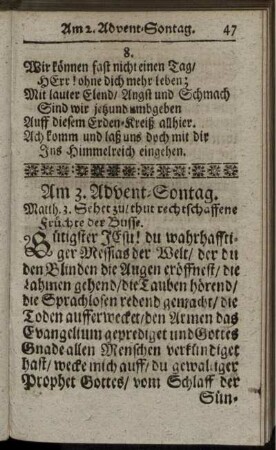 Am 2. Advent-Sontag. 47
8.
Wir können fast nicht einen Tag/
HErr! ohne dich mehr leben;
Mit lauter Elend/ Angst und Schmach
Sind wir jetzund umbgeben
Auff diesem Erden-Kreiß allhier.
Ach komm und laß uns doch mit dir
Ins Himmelreich eingehen.
Am 3. Advent-Sontag.
Matth. 3. Sehet zu/ thut rechtschaffene
Früchte der Busse.
Gütigster JEsu! du wahrhaffti-
ger Messias der Welt/ der du
den Blinden die Augen eröffnest/ die
Lahmen gehend/ die Tauben hörend/
die Sprachlosen redend gemacht/ die
Toden aufferwecket/ den Armen das
Evangelium geprediget und Gottes
Gnade allen Menschen verkündiget
hast/ wecke mich auff/ du gewaltiger
Prophet Gottes/ vom Schlaff der
Sün-